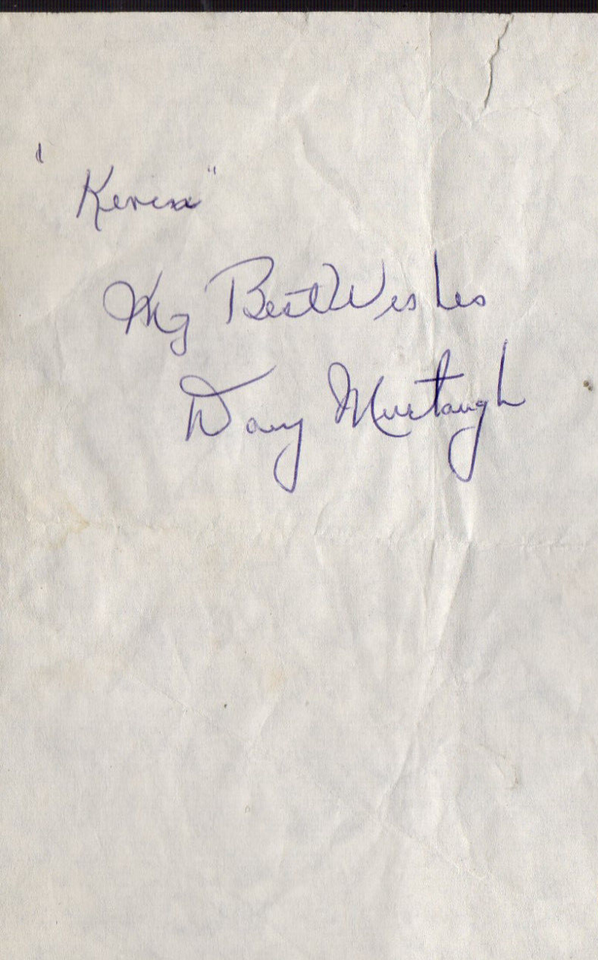 "Kevin"
My Best Wishes
Danny Murtaugh